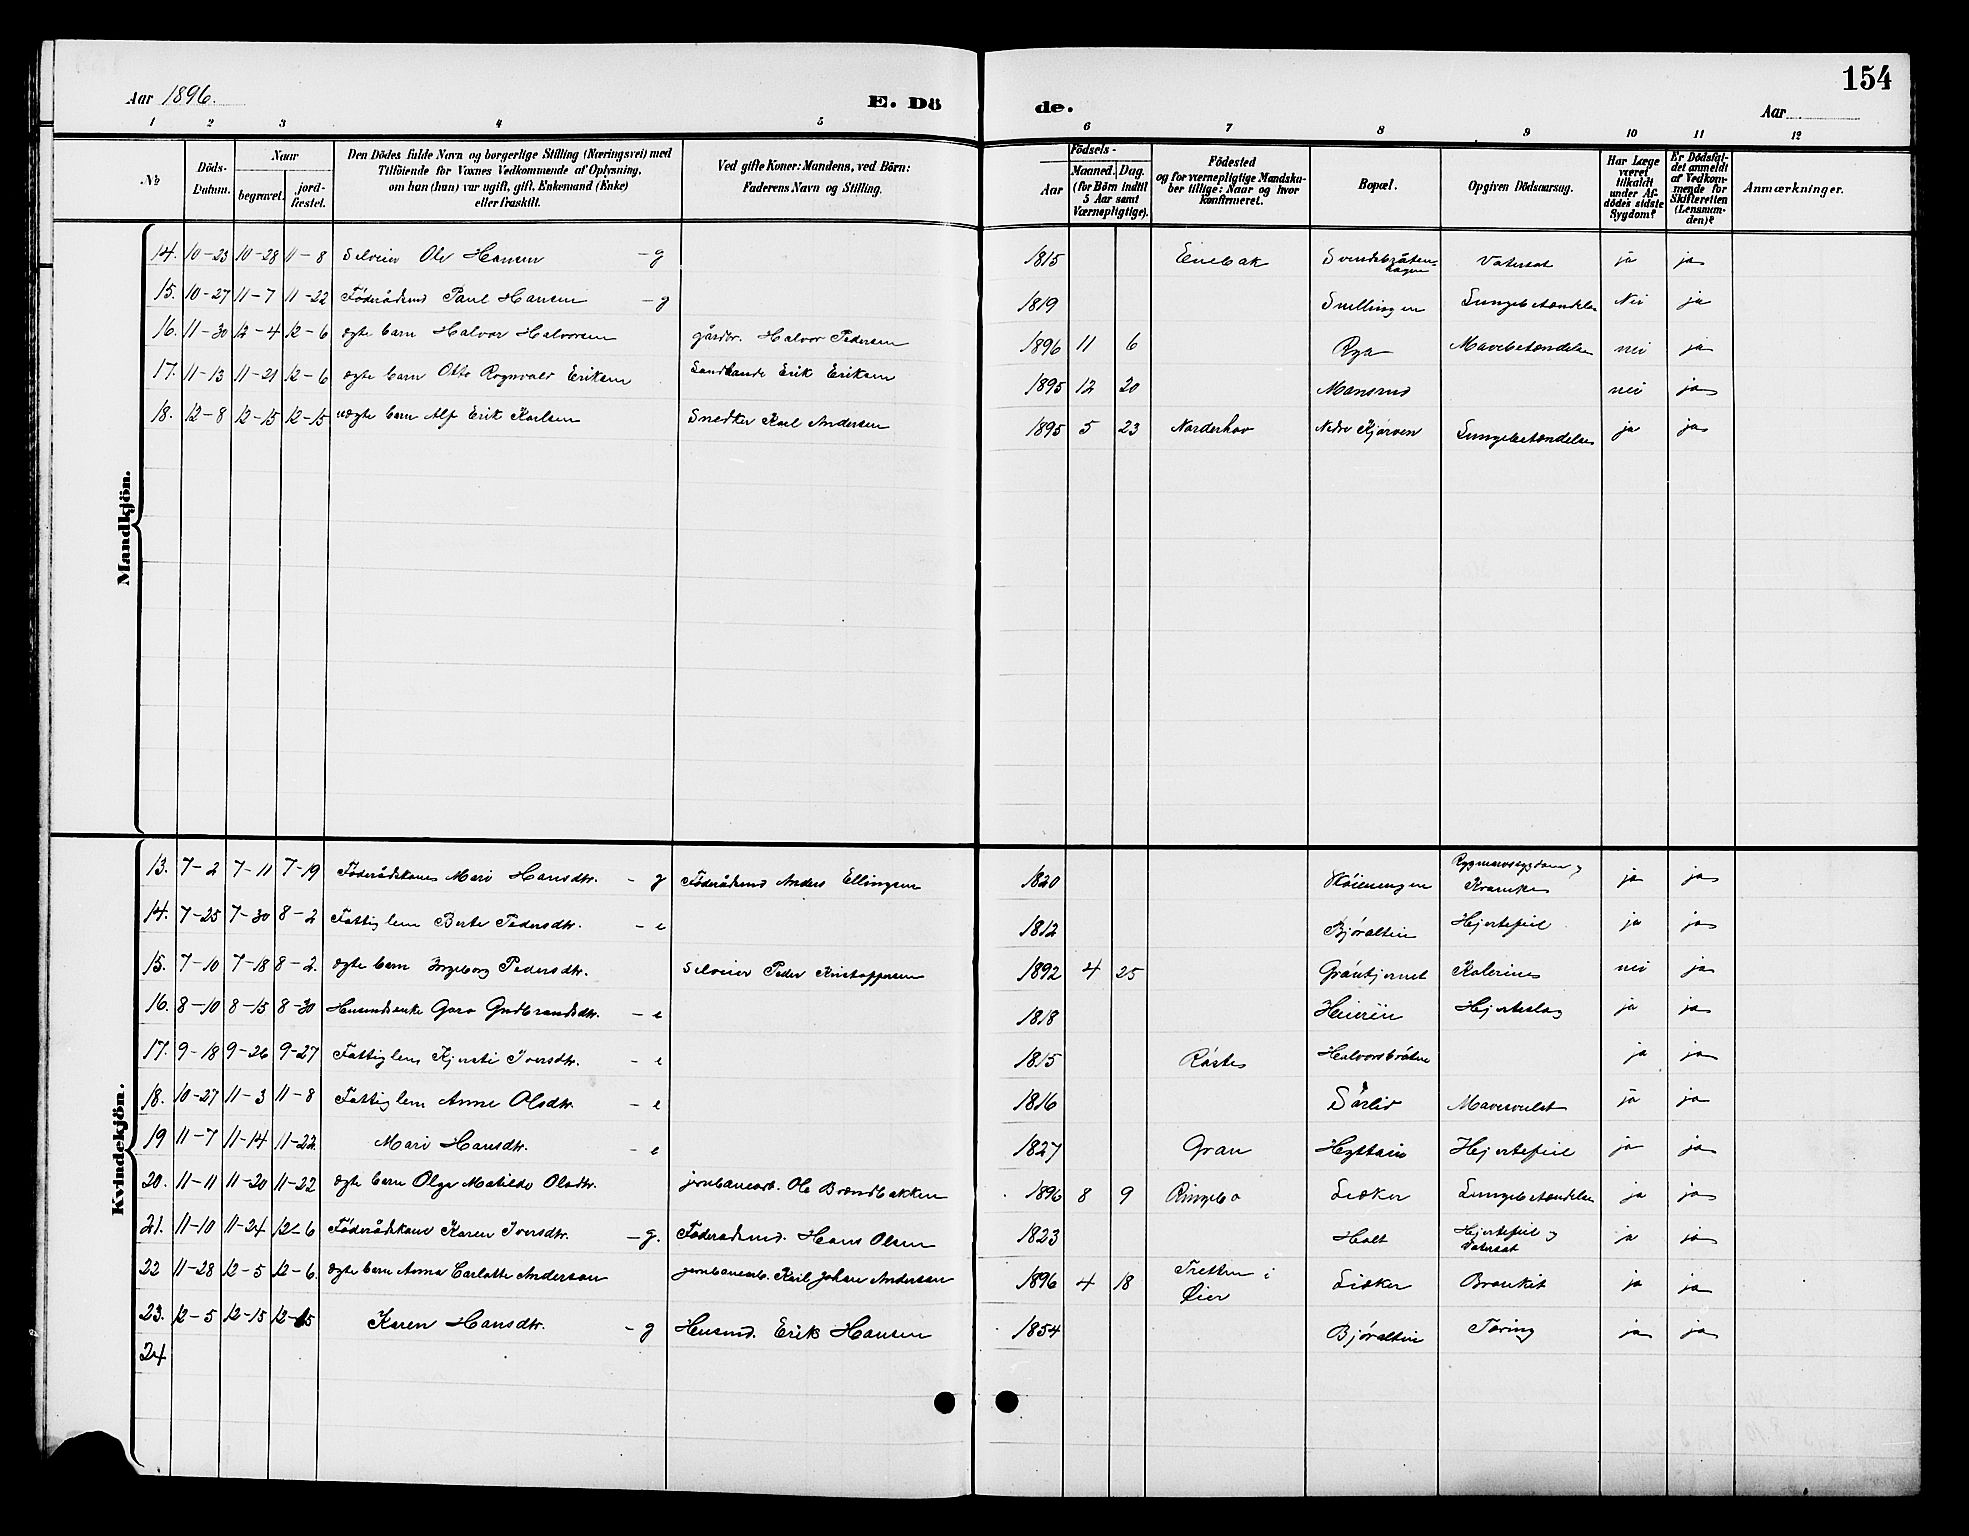 154
Aar 1896.
E. Dö
de.
Aar
1 2 3 4 5 6 7 8 9 10 11 12
№
Döds-Datum.
Naar
begravet.
jord-fæstet.
Den Dödes fulde Navn og borgerlige Stilling (Næringsvei) med
Tilföiende for Voxnes Vedkommende af Oplysning,
om han (hun) var ugift, gift, Enkemand (Enke)
eller fraskilt.
Ved gifte Koner: Mandens, ved Börn:
Faderens Navn og Stilling.
Födsels-
Aar
Maaned. Dag.
(for Börn indtil
5 Aar samt
Værnepligtige).
Födested
og for værnepligtige Mandska-
ber tillige: Naar og hvor
konfirmeret.
Bopæl.
Opgiven Dödsaarsag.
Har Læge
været
tilkaldt
under Af-
dödes sidste
Sygdom?
Er Dödsfal-
det anmeldt
af Vedkom-
mende for
Skifteretten
(Lensman-
den)?
Anmærkninger.
Mandkjön.
14. 10-23 10-28 11-8 Selveier Ole Hansen - g 1815 Enebak Vatersot ja ja
15. 10-27 11-7 11-22 Föderådsmd Paul Hansen - g 1819 Snellingen Lungebetændelse Nei ja
16. 11-30 12-4 12-6 ægte barn Halvor Halvorsen gårdbr. Halvor Pedersen 1896 11 6 Rya Mavebetændelse nei ja
17. 11-13 11-21 12-6 ægte barn Otto Rognvald Eriksen Landhandl Erik Eriksen 1895 12 20 Mansrud nei ja
18. 12-8 12-15 12-15 uægte barn Alf Erik Karlsen Snedker Karl Andersen 1895 5 23 Norderhov Nedre Kjørven Lungebetændelse ja ja
Kvindekjön.
13. 7-2 7-11 7-19 Föderådskone Mari Hansdtr. - g Föderådsmd Anders Ellingsen 1820 Rygmarvssygdom og Krampe ja ja
14. 7-25 7-30 8-2 Fattiglem Berte Pedersdtr. - e 1812 Bjøraltin Hjertefeil ja ja
15. 7-10 7-18 8-2. ægte barn Ingeborg Pedersdtr. Selveier Peder Kristoffersen 1892 4 25 Gröntjernet Kolerine nei ja
16. 8-10 8-15 8-30 Husmdsenke Goro Gudbrandsdtr. - e 1818 Heieren Hjerteslag ja ja
17. 9-18 9-26 9-27 Fattiglem Kjersti Iversdtr. - e 1815 Halvorsbråten ja ja
18. 10-27 11-3 11-8 Fattiglem Anne Olsdtr. - e 1816 Sörlie Mavesvulst ja ja
19 11-7 11-14 11-22. Mari Hansdtr. - e 1827 Gran Hyttain Hjertefeil ja ja
20. 11-11 11-20 11-22 ægte barn Olga Matilde Olsdtr. jernbanearb. Ole Brændbakken 1896 8 9 Ringebo Lisker Lungebetændelse ja ja
21. 11-10 11-24 12-6 Föderådskone Karen Iversdtr. - g. Föderådsmd. Hans Olsen 1823 Holt Hjertefeil og Vatersot ja ja
22 11-28 12-5 12-6. ægte barn Anna Carlotte Anderson jernbanearb. Karl Johan Anderson 1896 4 18 Tretten i Öier Lisker Bronkit ja ja
23. 12-5 12-15 12-15 Karen Hansdtr. - g Husmd. Erik Hansen 1854 Bjøraltin Tæring ja ja
24